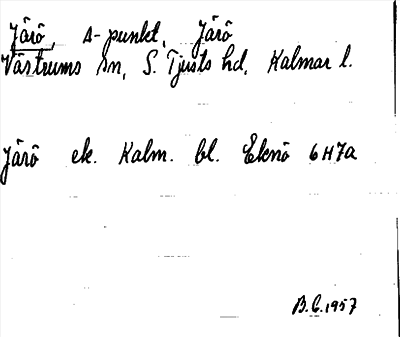 Järö, s-punkt, Järö
Västrums sn, S. Tjusts hd, Kalmar l.
Järö ek. Kalm. bl. Eknö 6H7a
B.G. 1957